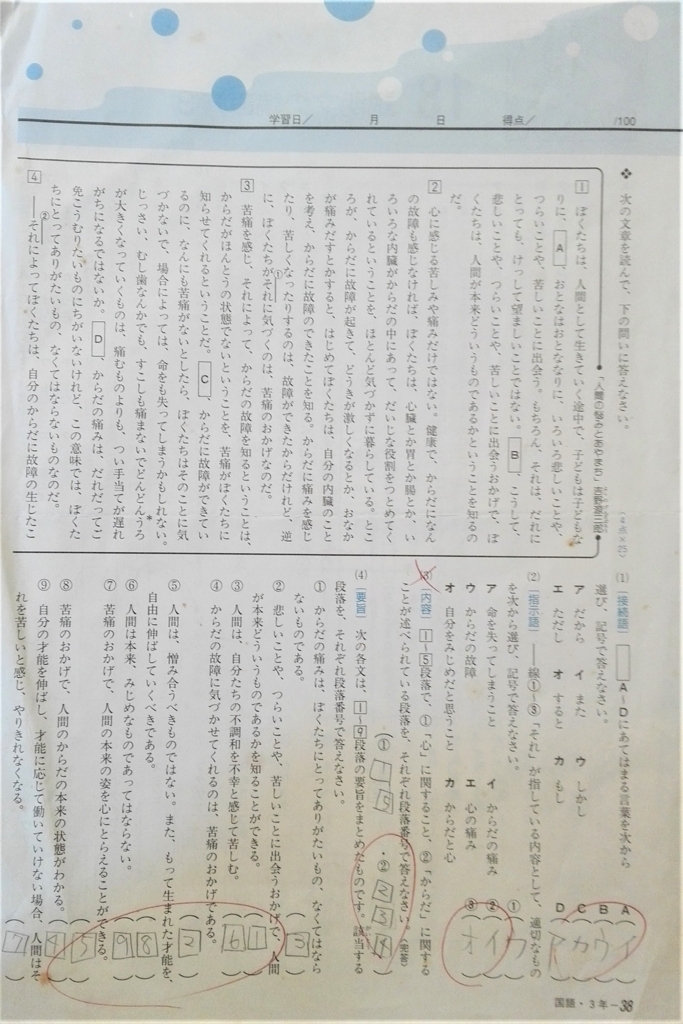 学習日／　月　日　得点／　/100
❖ 次の文章を読んで、下の問いに答えなさい。
「人間の悩みとあやまち」吉野源三郎
(4点×25)
1 ぼくたちは、人間として生きていく途中で、子どもは子どもな
りに、A、おとなはおとななりに、いろいろ悲しいことや、
つらいことや、苦しいことに出会う。もちろん、それは、だれに
とっても、けっして望ましいことではない。B、こうして、
悲しいことや、つらいことや、苦しいことに出会うおかげで、ぼ
くたちは、人間が本来どういうものであるかということを知るの
だ。
2 心に感じる苦しみや痛みだけではない。健康で、からだになん
の故障も感じなければ、ぼくたちは、心臓とか胃とか腸とか、い
ろいろな内臓がからだの中にあって、だいじな役割をつとめてく
れているということを、ほとんど気づかずに暮らしている。とこ
ろが、からだに故障が起きて、どうきが激しくなるとか、おなか
が痛みだすとかすると、はじめてぼくたちは、自分の内臓のこと
を考え、からだに故障のできたことを知る。からだに痛みを感じ
たり、苦しくなったりするのは、故障ができたからだけれど、逆
に、ぼくたちがそれに気づくのは、苦痛のおかげなのだ。
①
3 苦痛を感じ、それによって、からだの故障を知るということは、
からだがほんとうの状態でないということを、苦痛がぼくたちに
知らせてくれるということだ。C、からだに故障ができてい
るのに、なんにも苦痛がないとしたら、ぼくたちはそのことに気
づかないで、場合によっては、命をも失ってしまうかもしれない。
じっさい、むし歯なんかでも、すこしも痛まないでどんどんうろ*
が大きくなっていくものは、痛むものよりも、つい手当てが遅れ
がちになるではないか。D、からだの痛みは、だれだってご
免こうむりたいものにちがいないけれど、この意味では、ぼくた
ちにとってありがたいもの、なくてはならないものなのだ。
4 ②それによってぼくたちは、自分のからだに故障の生じたこ
(1)［接続語］A～Dにあてはまる言葉を次から
選び、記号で答えなさい。
ア だから　イ また　ウ しかし
エ ただし　オ すると　カ もし
A（イ）
B（ウ）
C（カ）
D（ア）
(2)［指示語］――線①～③「それ」が指している内容として、適切なもの
を次から選び、記号で答えなさい。
ア 命を失ってしまうこと　イ からだの痛み
ウ からだの故障　エ 心の痛み
オ 自分をみじめだと思うこと　カ からだと心
①（ウ）
②（イ）
③（オ）
(3)［内容］1～5段落で、①「心」に関すること、②「からだ」に関する
ことが述べられている段落を、それぞれ段落番号で答えなさい。〈完答〉
（① 1 5 ・② 2 3 4）
(4)［要旨］次の各文は、1～9段落の要旨をまとめたものです。該当する
段落を、それぞれ段落番号で答えなさい。
① からだの痛みは、ぼくたちにとってありがたいもの、なくてはなら
ないものである。（3）
② 悲しいことや、つらいことや、苦しいことに出会うおかげで、人間
が本来どういうものであるかを知ることができる。（1）
③ 人間は、自分たちの不調和を不幸と感じて苦しむ。（6）
④ からだの故障に気づかせてくれるのは、苦痛のおかげである。（2）
⑤ 人間は、憎み合うべきものではない。また、もって生まれた才能を、
自由に伸ばしていくべきである。（8）
⑥ 人間は本来、みじめなものであってはならない。（9）
⑦ 苦痛のおかげで、人間の本来の姿を心にとらえることができる。（5）
⑧ 苦痛のおかげで、人間のからだの本来の状態がわかる。（4）
⑨ 自分の才能を伸ばし、才能に応じて働いていけない場合、人間はそ
れを苦しいと感じ、やりきれなくなる。（7）
国語・3年－38